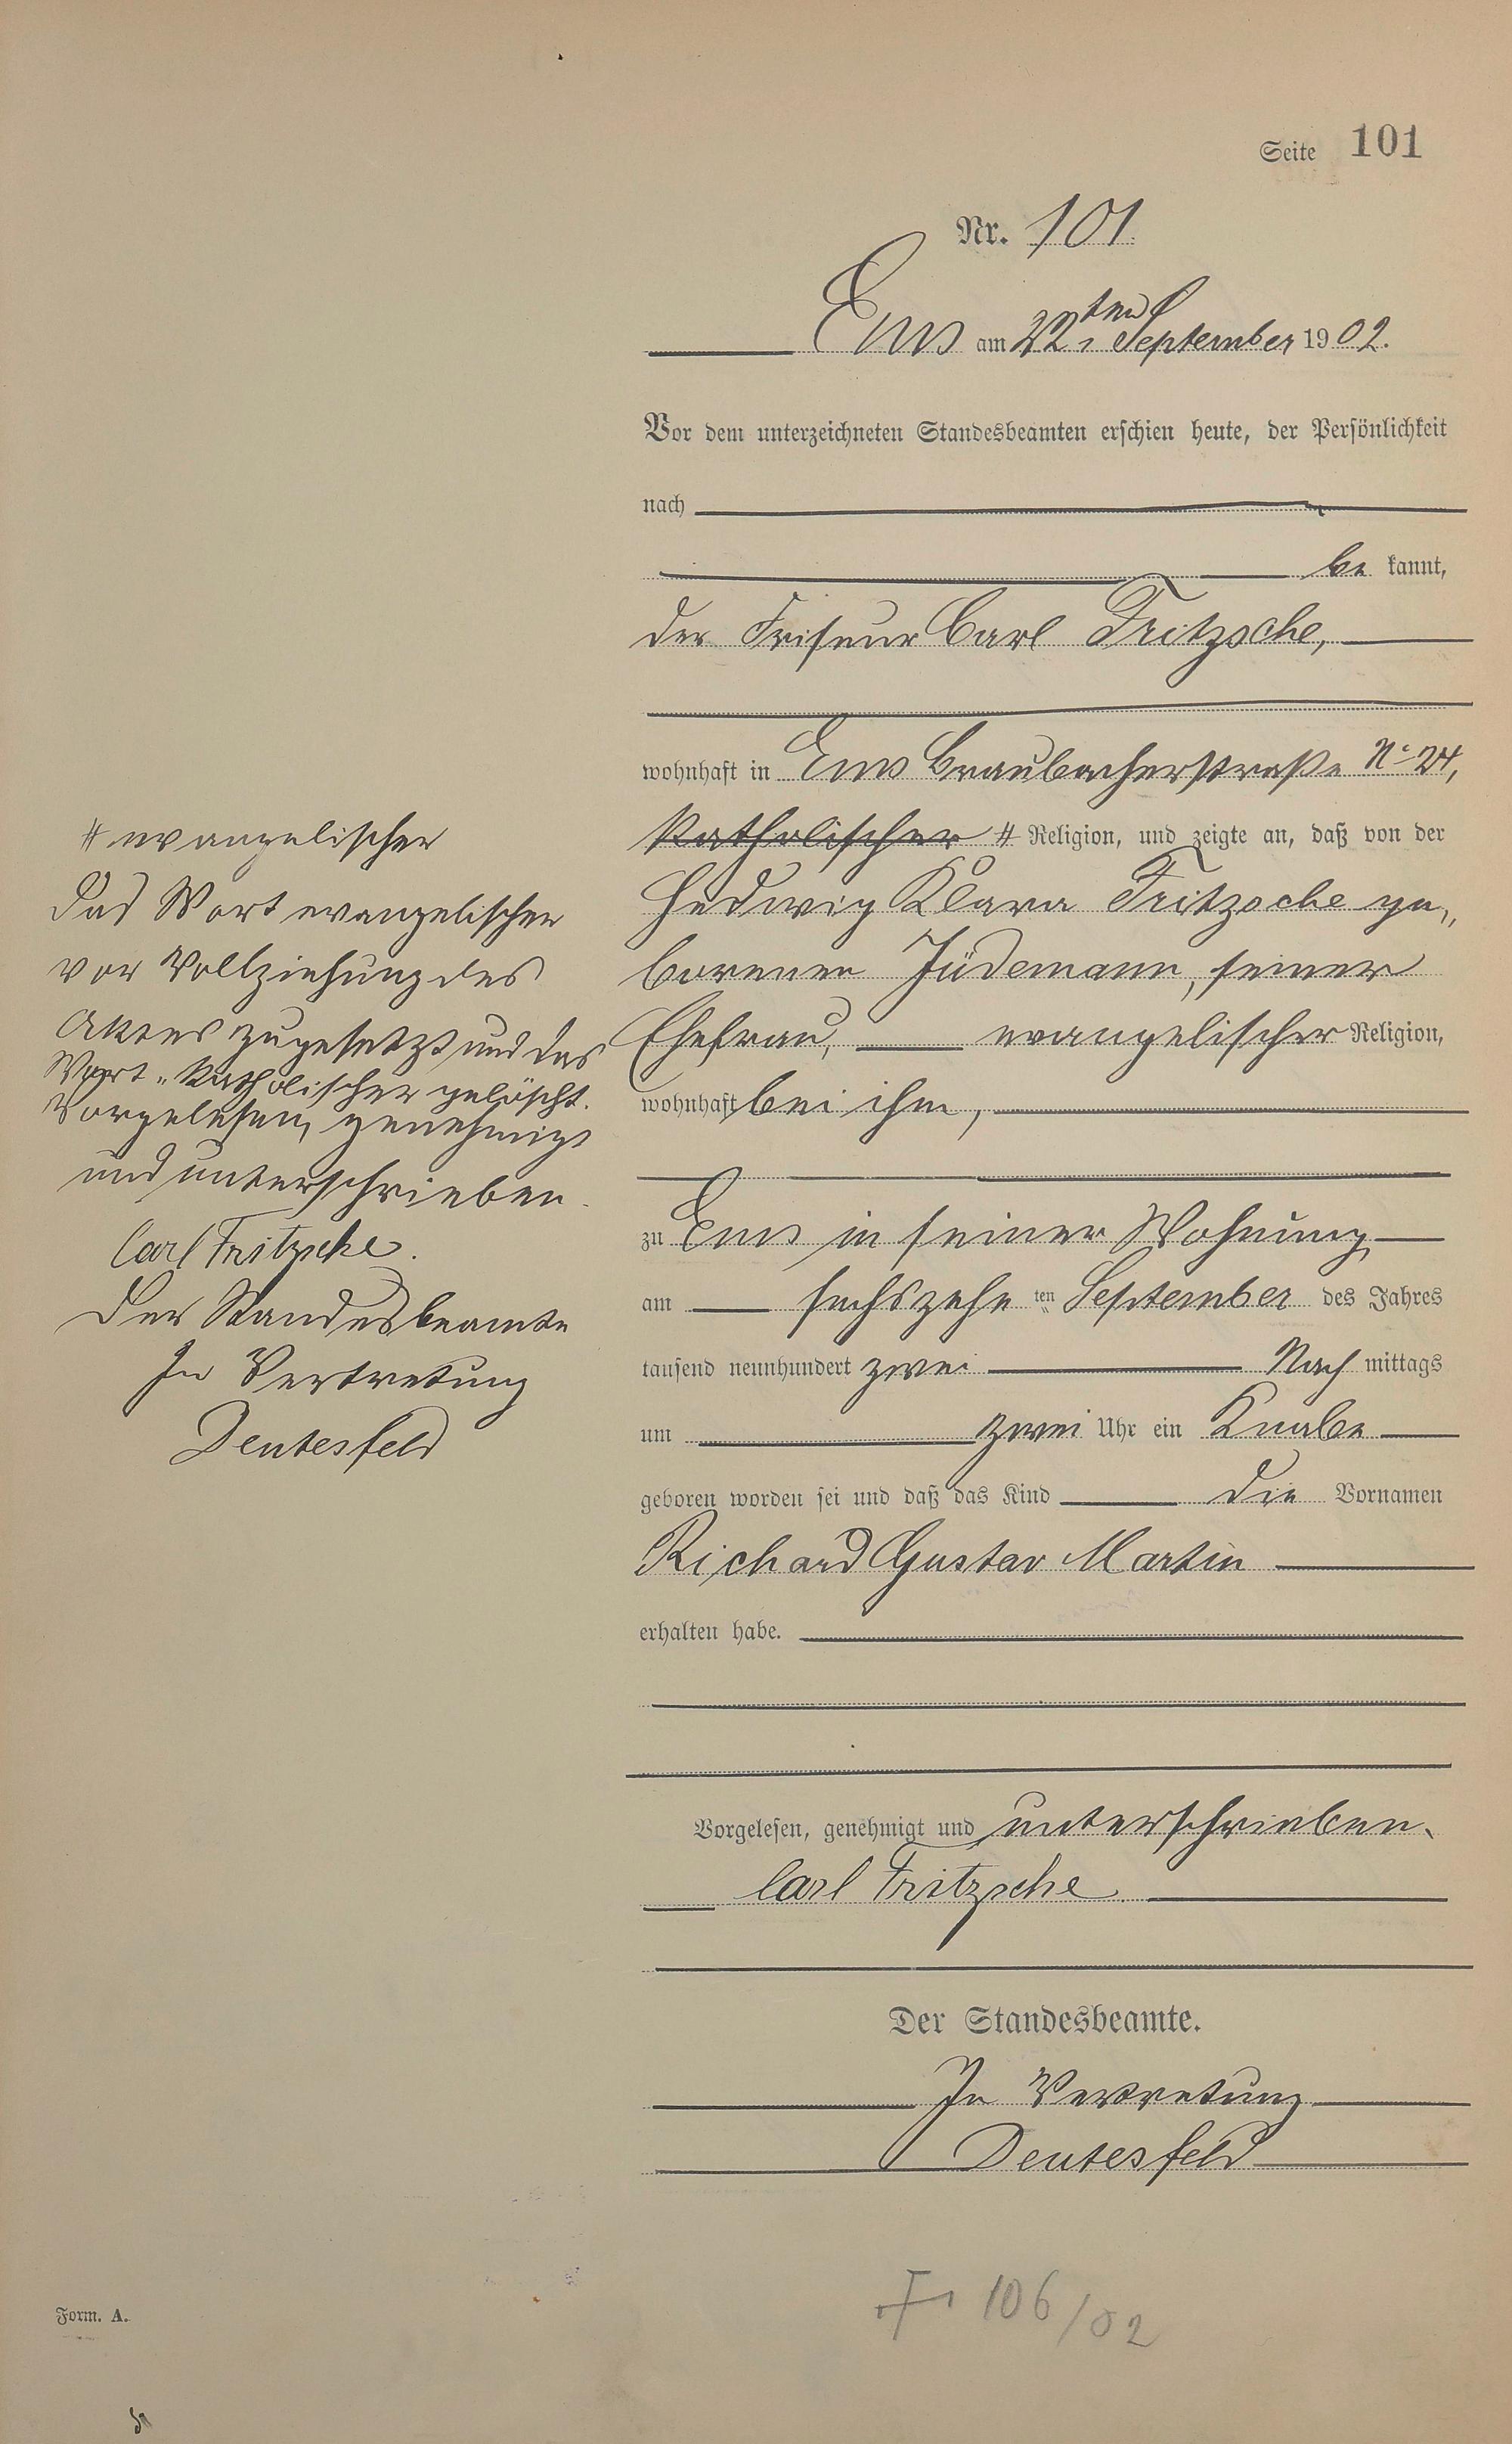 Seite 101
Nr. 101.
Ems am 22ten September 1902.
Vor dem unterzeichneten Standesbeamten erschien heute, der Persönlichkeit
nach
be kannt,
der Friseur Carl Fritzsche,
wohnhaft in Ems Braubacherstraße No 24,
katholischer # Religion, und zeigte an, daß von der
Hedwig Klara Fritzsche ge„
borenen Jüdemann, seiner
Ehefrau, evangelischer Religion,
wohnhaft bei ihm,
zu Ems in seiner Wohnung
am sechszehn ten September des Jahres
tausend neunhundert zwei Nach mittags
um zwei Uhr ein Knabe
geboren worden sei und daß das Kind die Vornamen
Richard Gustav Martin
erhalten habe.
Vorgelesen, genehmigt und unterschrieben.
Carl Fritzsche
Der Standesbeamte.
In Vertretung
Deutesfeld
# evangelischer
Das Wort evangelischer
vor Vollziehung des
Aktes zugesetzt und das
Wort „katholischer gelöscht.
Vorgelesen, genehmigt
und unterschrieben.
Carl Fritzsche.
Der Standesbeamte
In Vertretung
Deutesfeld
106/02
Form. A.